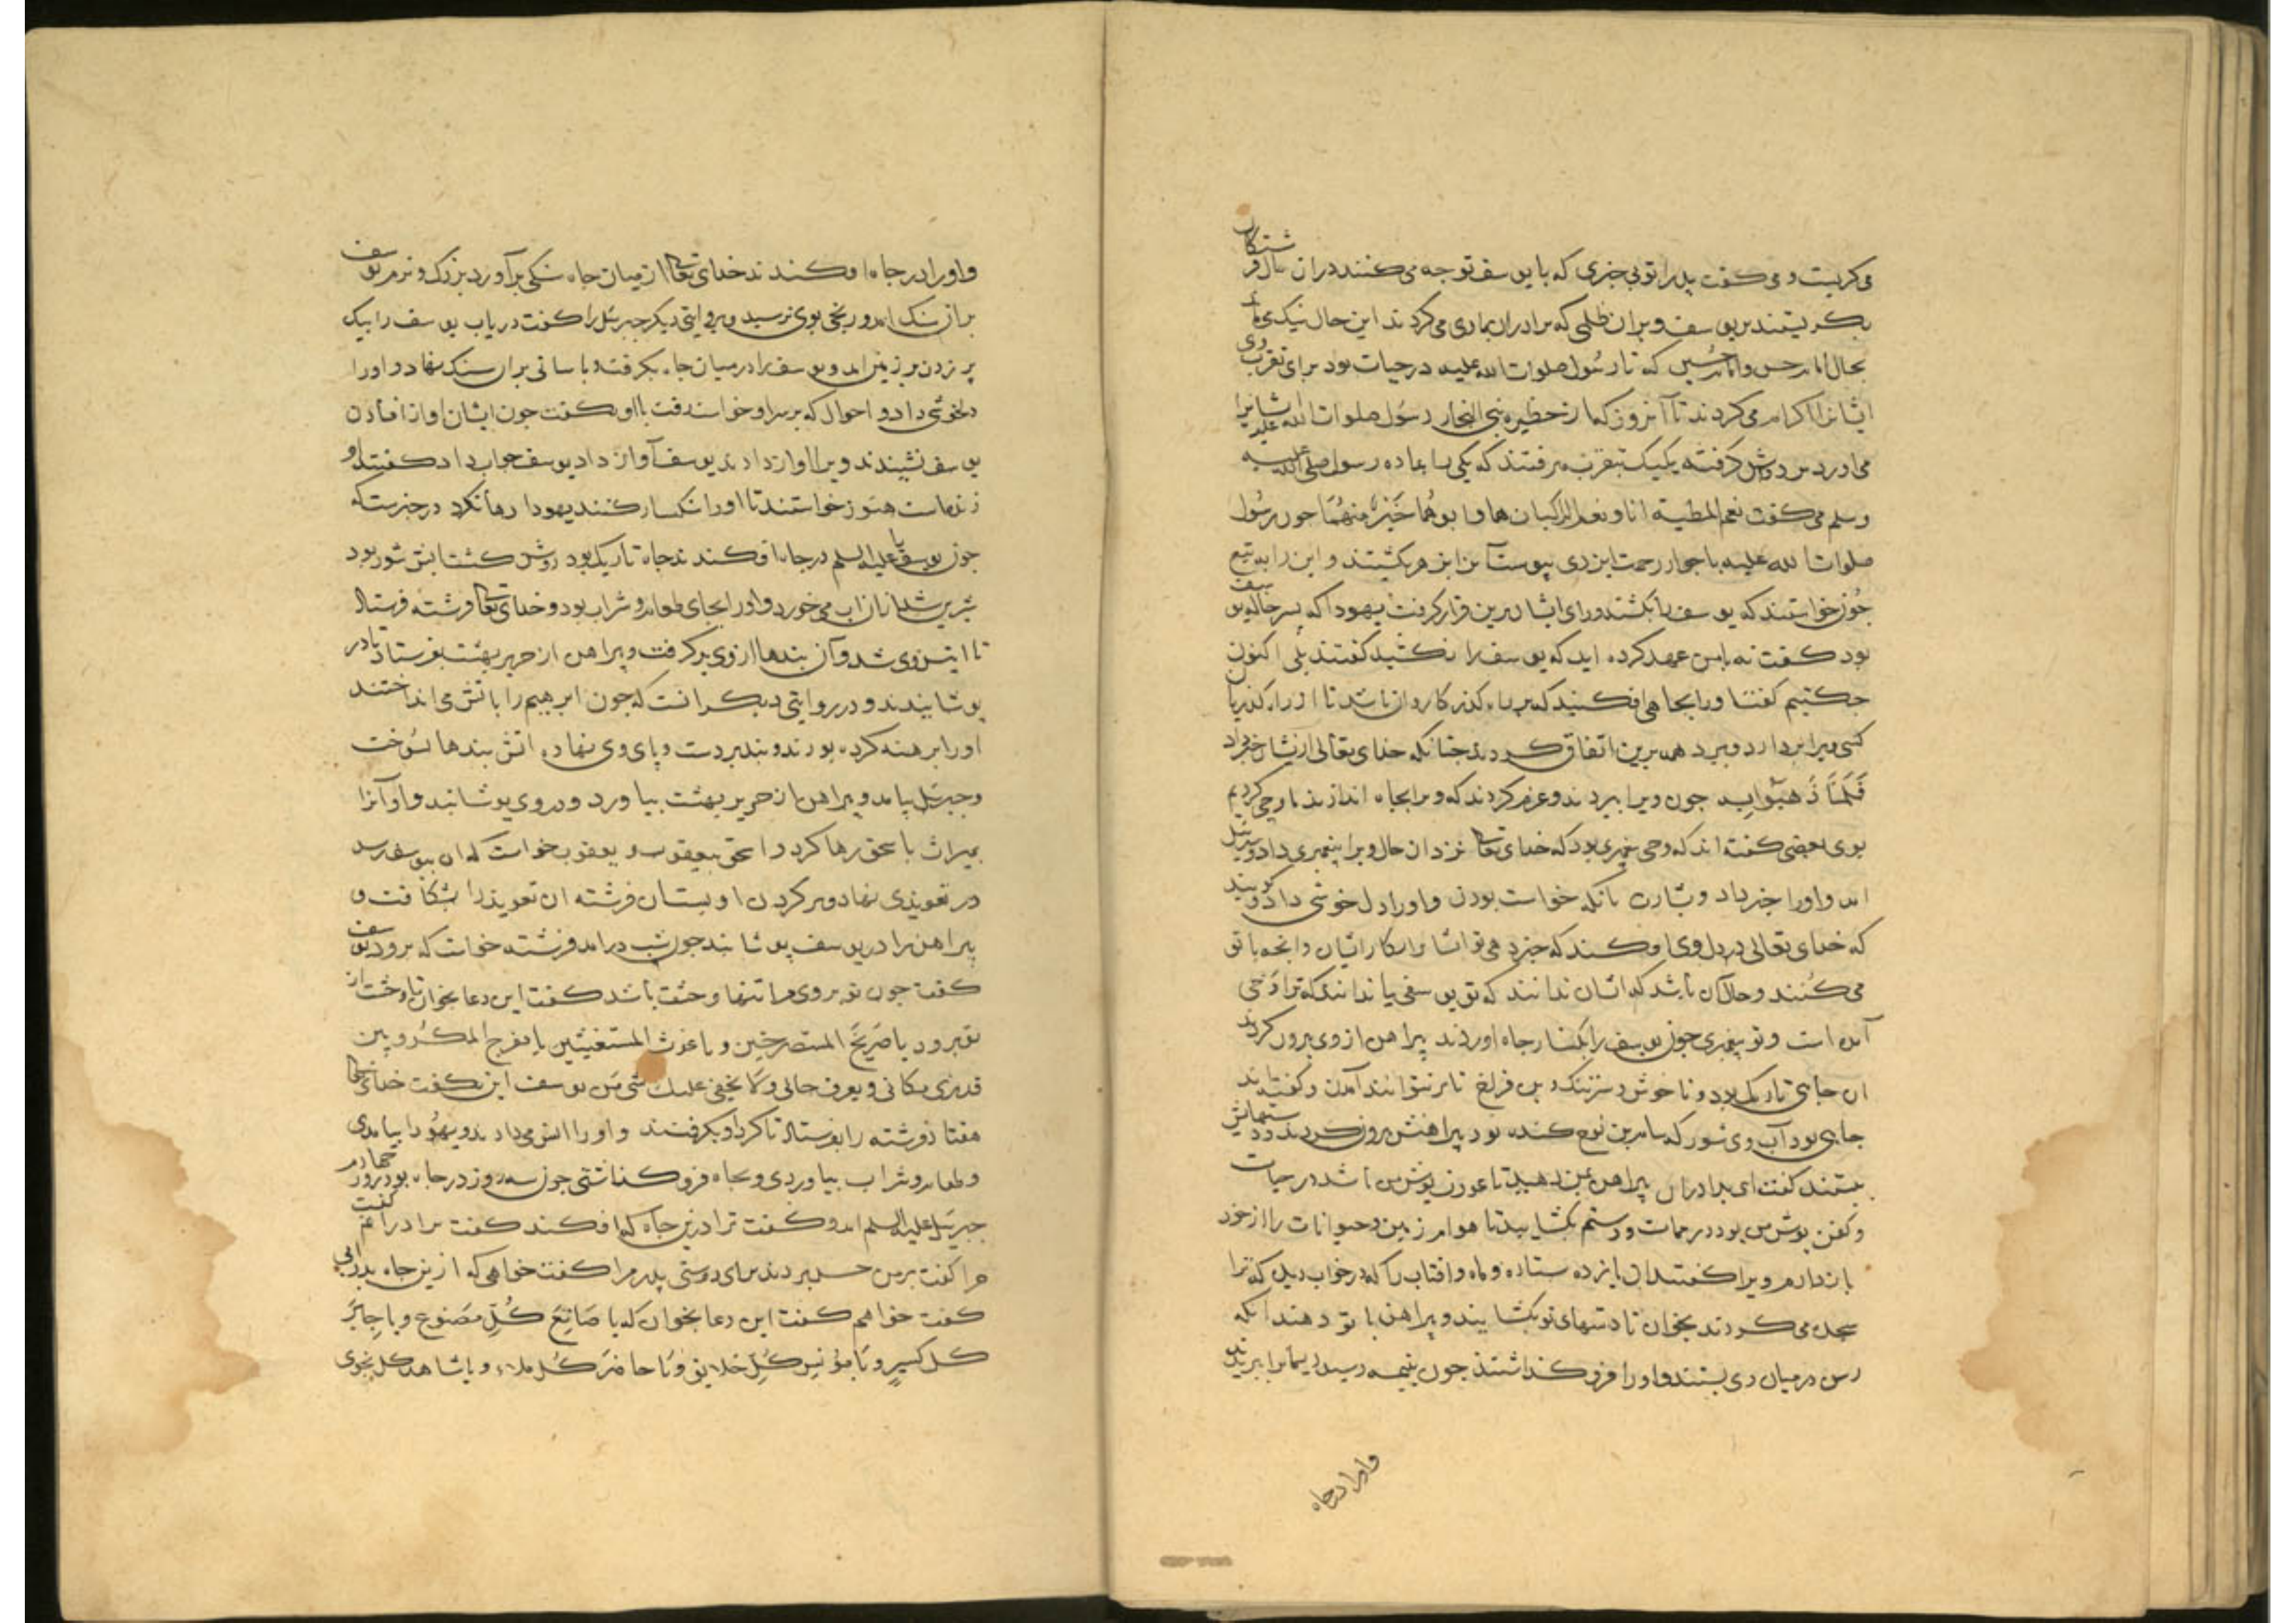 می کریست و می کفت پدرا تو بی خبری که با یوسف توجه می کنند دران حال فرشتکان
بکریستند بر یوسف و بران ظلمی که برادران بماری می کردند این حال نیک می ماند
بحال امام حسن و امام حسین که تا رسول صلوات الله علیه در حیات بود برای تقرب وی
ایشانرا اکرام می کردند تا آنروز که از حظیره بنی النجار رسول صلوات الله علیه ایشانرا
می آورد بر دوش کرفته یکیک بتقرب برفتند که یکی بما ده رسول صلی الله علیه
وسلم می کفت نعم المطیة انا و نعم الراکبان هما و ابوهما خَیْرٌ منهُما جون رسُول
صلوات الله علیه با جوار رحمت ایزدی پیوست آن را بزهر بکشتند و این را به تیغ
جون خواستند که یوسف را بکشند و رای ایشان برین قرار کرفت یهودا که پسر خاله یوسف
بود کفت نه با من عهد کرده اید که یوسف را نکشید کفتند بلی اکنون
جکنیم کفت او را بجاهی افکنید که بر راه کذر کاروان باشد تا از راه کذریان
کسی ویرا بردارد و ببرد همه برین اتفاق کردند جنانکه خدای تعالی ازیشان خبر داد
فَلَمَّا ذَهَبُوا بِه جون ویرا ببردند و عزم کردند که ویرا بجاه اندازند ما وحی کردیم
بوی بعضی کفته اند که وحی پیغمبری بود که خدای تعالی در ان حال ویرا پیغمبری داد و جبرئیل
امد و او را خبر داد و بشارت بانکه خواست بودن و او را دل خوشی داد و کویند
که خدای تعالی در دل وی افکند که خبر دهی تو ایشان را بکار ایشان و انجه با تو
می کنند و حال آن باشد که ایشان ندانند که تو یوسفی یا ندانند که ترا وحی
آمده است و تو پیغمبری جون یوسف را بکنار جاه اوردند پیراهن از وی برون کردند
ان جاهی تاریک بود و ناخوش و سر تنک و بن فراخ تا بر نتواند آمدن و کفته اند
جاهی بود آب وی شور که سام بن نوح کنده بود پیراهنش برون کردند و دستهایش
ببستند کفت ای برادران پیراهن بمن دهید تا عورت پوش من باشد در حیات
و کفن پوش من بود در ممات و دستم بکشایید تا هوام زمین و حیوانات را از خود
بازدارم ویرا کفتند ان یازده ستاره و ماه و افتاب را که در خواب دیدی که ترا
سجده می کردند بخوان تا دستهای تو بکشایند و پیراهن با تو دهند انکه
رسن در میان وی بستند و او را فرو کذاشتند جون بنیمه رسید ریسمانرا ببریدند
و او را در جاه
و او را در جاه افکندند خدای تعالی از میان جاه سنکی برآورد بزرک و نرم یوسف
بر ان سنک امد و رنجی بوی نرسید و بروایتی دیکر جبرئیل را کفت دریاب یوسف را بیک
پر زدن بر زمین امد و یوسف را در میان جاه بکرفت و باسانی بران سنک نهاد و او را
دلخوشی داد و احوال که بر سر او خواست رفت با او بکفت جون ایشان اواز افتادن
یوسف نشنیدند ویرا اواز دادند یوسف آواز داد یوسف جواب داد کفتند او
زنده است هنوز خواستند تا او را سنکسار کنند یهودا رها نکرد در خبرست که
جون یوسف را علیه السلم در جاه افکندند جاه تاریک بود روشن کشت ابش شور بود
شیرین شد او ازان اب می خورد و او را بجای طعام و شراب بود و خدای تعالی فرشته فرستاد
تا انیس وی شد و آن بندها از وی بر کرفت و پیراهن از حریر بهشت بفرستاد تا در
پوشانیدند و در روایتی دیکر انست که جون ابرهیم را باتش می انداختند
او را برهنه کرده بودند و بند بر دست و پای وی نهاده اتش بندها بسوخت
و جبرئیل بیامد و پیراهن از حریر بهشت بیاورد و در وی پوشانید و او آنرا
بمیراث با سحق رها کرد و اسحق بیعقوب و یعقوب خواست که ان بیوسف رسد
در تعویذی نهاد و بر کردن او بست ان فرشته ان تعویذ را بشکافت و
پیراهن را در یوسف پوشانید جون شب درامد فرشته خواست که برود یوسف
کفت جون تو بروی مرا تنها وحشت باشد کفت این دعا بخوان تا وحشت از
تو برود یا صَریخَ المستصرخین و یا غوث المستغیثین یا مفرج المکروبین
قد تری مکانی و یعرف حالی وَلا یخفی علیک شیٌ من یوسف این بکفت خدای تعالی
هفتاد فرشته را بفرستاد تا کرد او بکرفتند و او را انس می دادند و یهودا بیامدی
و طعام و شراب بیاوردی و بجاه فرو کذاشتی جون سه روز در جاه بود روز جهارم
جبرئیل علیه السلم امد و کفت ترا درین جاه که افکند کفت برادرانم کفت
جرا کفت بر من حسد بردند برای دوستی پدر مرا کفت خواهی که ازین جاه بدر ایی
کفت خواهم کفت این دعا بخوان که یا صَانِعَ کُلِّ مَصنوعٍ و یا جابِرَ
کل کسیرٍ و یَا مُؤنِسَ کُلِّ خلایق وَ یَا حاضرَ کُل ملاءٍ و یا شاهد کل نجوی